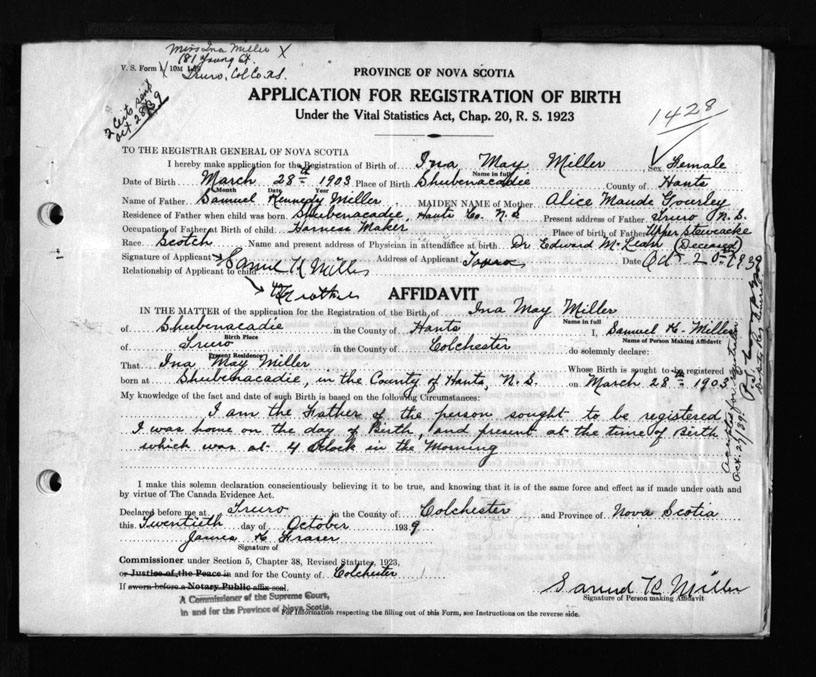 Miss Ina Miller X
181 Young St.
V. S. Form 10M
Truro, Col Co. N.S.
2 Certs sent
Oct 28/39
PROVINCE OF NOVA SCOTIA
APPLICATION FOR REGISTRATION OF BIRTH
Under the Vital Statistics Act, Chap. 20, R. S. 1923
1428
TO THE REGISTRAR GENERAL OF NOVA SCOTIA
I hereby make application for the Registration of Birth of Ina May Miller Sex Female
Name in full
Date of Birth March 28th 1903 Place of Birth Shubenacadie County of Hants
Month Date Year
Name of Father Samuel Kennedy Miller MAIDEN NAME of Mother Alice Maude Gourley
Residence of Father when child was born Shubenacadie, Hants Co. N S Present address of Father Truro N. S.
Occupation of Father at Birth of child Harness Maker Place of birth of Father Upper Stewiacke
Race Scotch Name and present address of Physician in attendance at birth Dr. Edward McLean (Deceased)
Signature of Applicant Samuel K Miller Address of Applicant Truro Date Oct 20th 1939
Relationship of Applicant to child
Father
AFFIDAVIT
IN THE MATTER of the application for the Registration of the Birth of Ina May Miller
Name in full
of Shubenacadie in the County of Hants I, Samuel K. Miller
Birth Place Name of Person Making Affidavit
of Truro in the County of Colchester do solemnly declare:
Present Residence
That Ina May Miller Whose Birth is sought to be registered
born at Shubenacadie, in the County of Hants, N. S. on March 28th 1903
My knowledge of the fact and date of such Birth is based on the following Circumstances:
I am the Father of the person sought to be registered
I was home on the day of Birth, and present at the time of Birth
which was at 4 Oclock in the Morning
Accepted for
Oct. 27/39.
I make this solemn declaration conscientiously believing it to be true, and knowing that it is of the same force and effect as if made under oath and
by virtue of The Canada Evidence Act.
Declared before me at Truro in the County of Colchester and Province of Nova Scotia
this Twentieth day of October 1939
James K Fraser
Signature of
Commissioner under Section 5, Chapter 38, Revised Statutes, 1923,
or Justice of the Peace in and for the County of Colchester
If sworn before a Notary Public affix seal.
Samuel K Miller
Signature of Person making Affidavit
A Commissioner of the Supreme Court,
in and for the Province of Nova Scotia.
For information respecting the filling out of this Form, see Instructions on the reverse side.